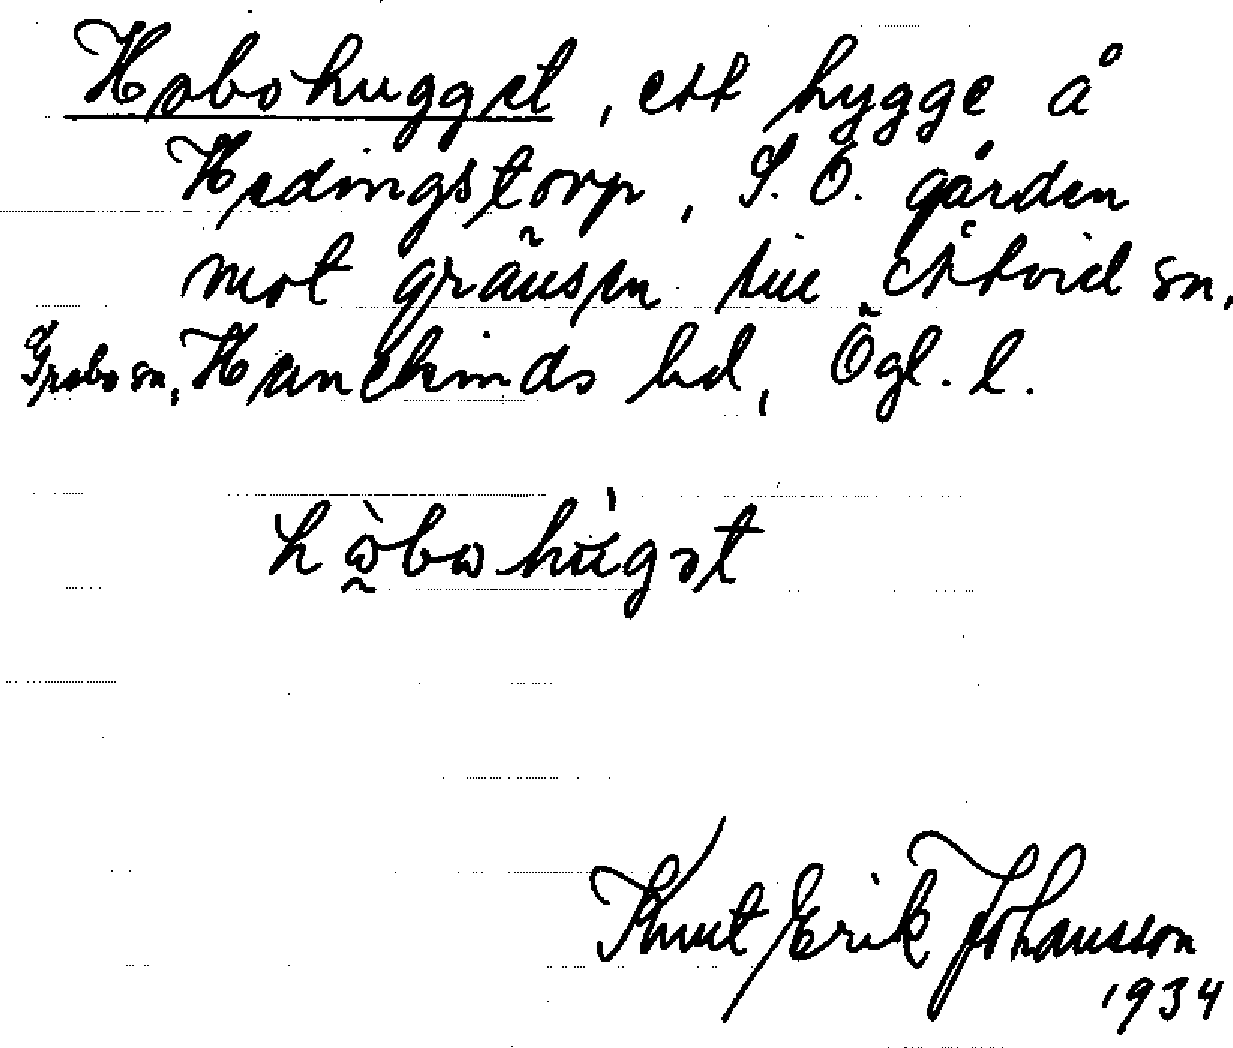 Habohugget, ett hygge å
Hedingstorp, S. O. gården
mot gränsen till Åtvid sn,
Grebo sn, Hanekinds hd, Ögl. l.
Knut Erik Johansson
1934